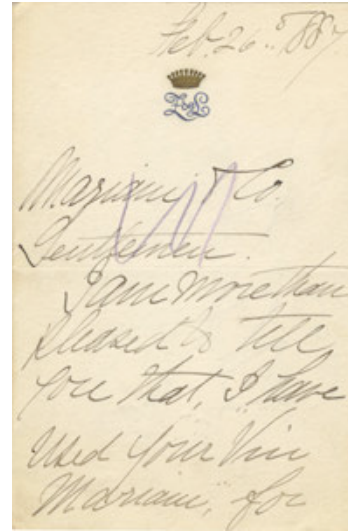 Feb. 26th 1887
Mariani & Co.
Gentlemen.
I am more than
pleased to tell
you that, I have
used your "Vin
Mariani," for